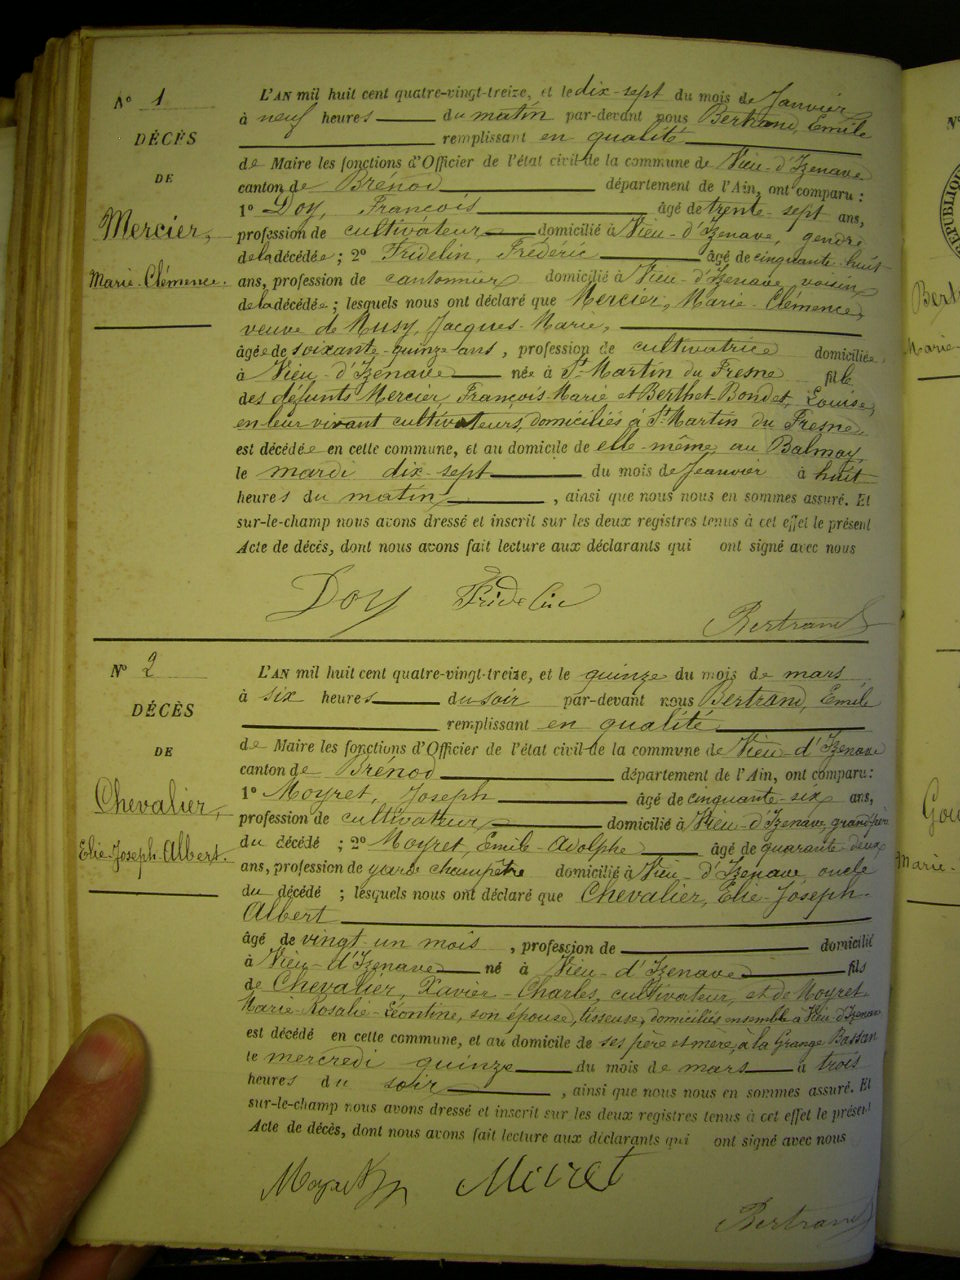 N° 1
DÉCÈS
DE
Mercier,
Marie-Clémence.
L'AN mil huit cent quatre-vingt-treize, et le dix-sept du mois de Janvier
à neuf heures du matin par-devant nous Bertrand, Emile
remplissant en qualité
de Maire les fonctions d'Officier de l'état civil de la commune de Vieu-d'Izenave
canton de Brénod département de l'Ain, ont comparu :
1° Doy, François âgé de trente-sept ans,
profession de cultivateur domicilié à Vieu-d'Izenave, gendre
de la décédée ; 2° Fridelin, Frédéric âgé de cinquante-huit
ans, profession de cantonnier domicilié à Vieu-d'Izenave, voisin
de la décédée ; lesquels nous ont déclaré que Mercier, Marie-Clémence,
veuve de Musy, Jacques-Marie,
âgée de soixante-quinze ans, profession de cultivatrice domiciliée
à Vieu-d'Izenave née à St-Martin du Fresne fille
des défunts Mercier, François-Marie et Berthet-Bondet, Louise,
en leur vivant cultivateurs, domiciliés à St-Martin du Fresne
est décédée en cette commune, et au domicile de elle-même au Balmay
le mardi dix-sept du mois de Jeanvier à huit
heures du matin, ainsi que nous nous en sommes assuré. Et
sur-le-champ nous avons dressé et inscrit sur les deux registres tenus à cet effet le présent
Acte de décès, dont nous avons fait lecture aux déclarants qui ont signé avec nous
Doy Fridelin
Bertrand
N° 2
DÉCÈS
DE
Chevalier,
Elie-Joseph-Albert.
L'AN mil huit cent quatre-vingt-treize, et le quinze du mois de mars
à six heures du soir par-devant nous Bertrand, Emile
remplissant en qualité
de Maire les fonctions d'Officier de l'état civil de la commune de Vieu-d'Izenave
canton de Brénod département de l'Ain, ont comparu :
1° Moyret, Joseph âgé de cinquante-six ans,
profession de cultivateur domicilié à Vieu-d'Izenave, grand-père
du décédé ; 2° Moyret, Emile-Adolphe âgé de quarante-deux
ans, profession de garde champêtre domicilié à Vieu-d'Izenave, oncle
du décédé ; lesquels nous ont déclaré que Chevalier, Elie-Joseph-
Albert
âgé de vingt-un mois, profession de domicilié
à Vieu-d'Izenave né à Vieu-d'Izenave fils
de Chevalier, Xavier-Charles, cultivateur, et de Moyret
Marie-Rosalie-Léontine, son épouse, tisseuse, domiciliés ensemble à Vieu-d'Izenave
est décédé en cette commune, et au domicile de ses père et mère, à la Grange Bassan
le mercredi quinze du mois de mars à trois
heures du soir, ainsi que nous nous en sommes assuré. Et
sur-le-champ nous avons dressé et inscrit sur les deux registres tenus à cet effet le présent
Acte de décès, dont nous avons fait lecture aux déclarants qui ont signé avec nous
Moyret Meiret
Bertrand